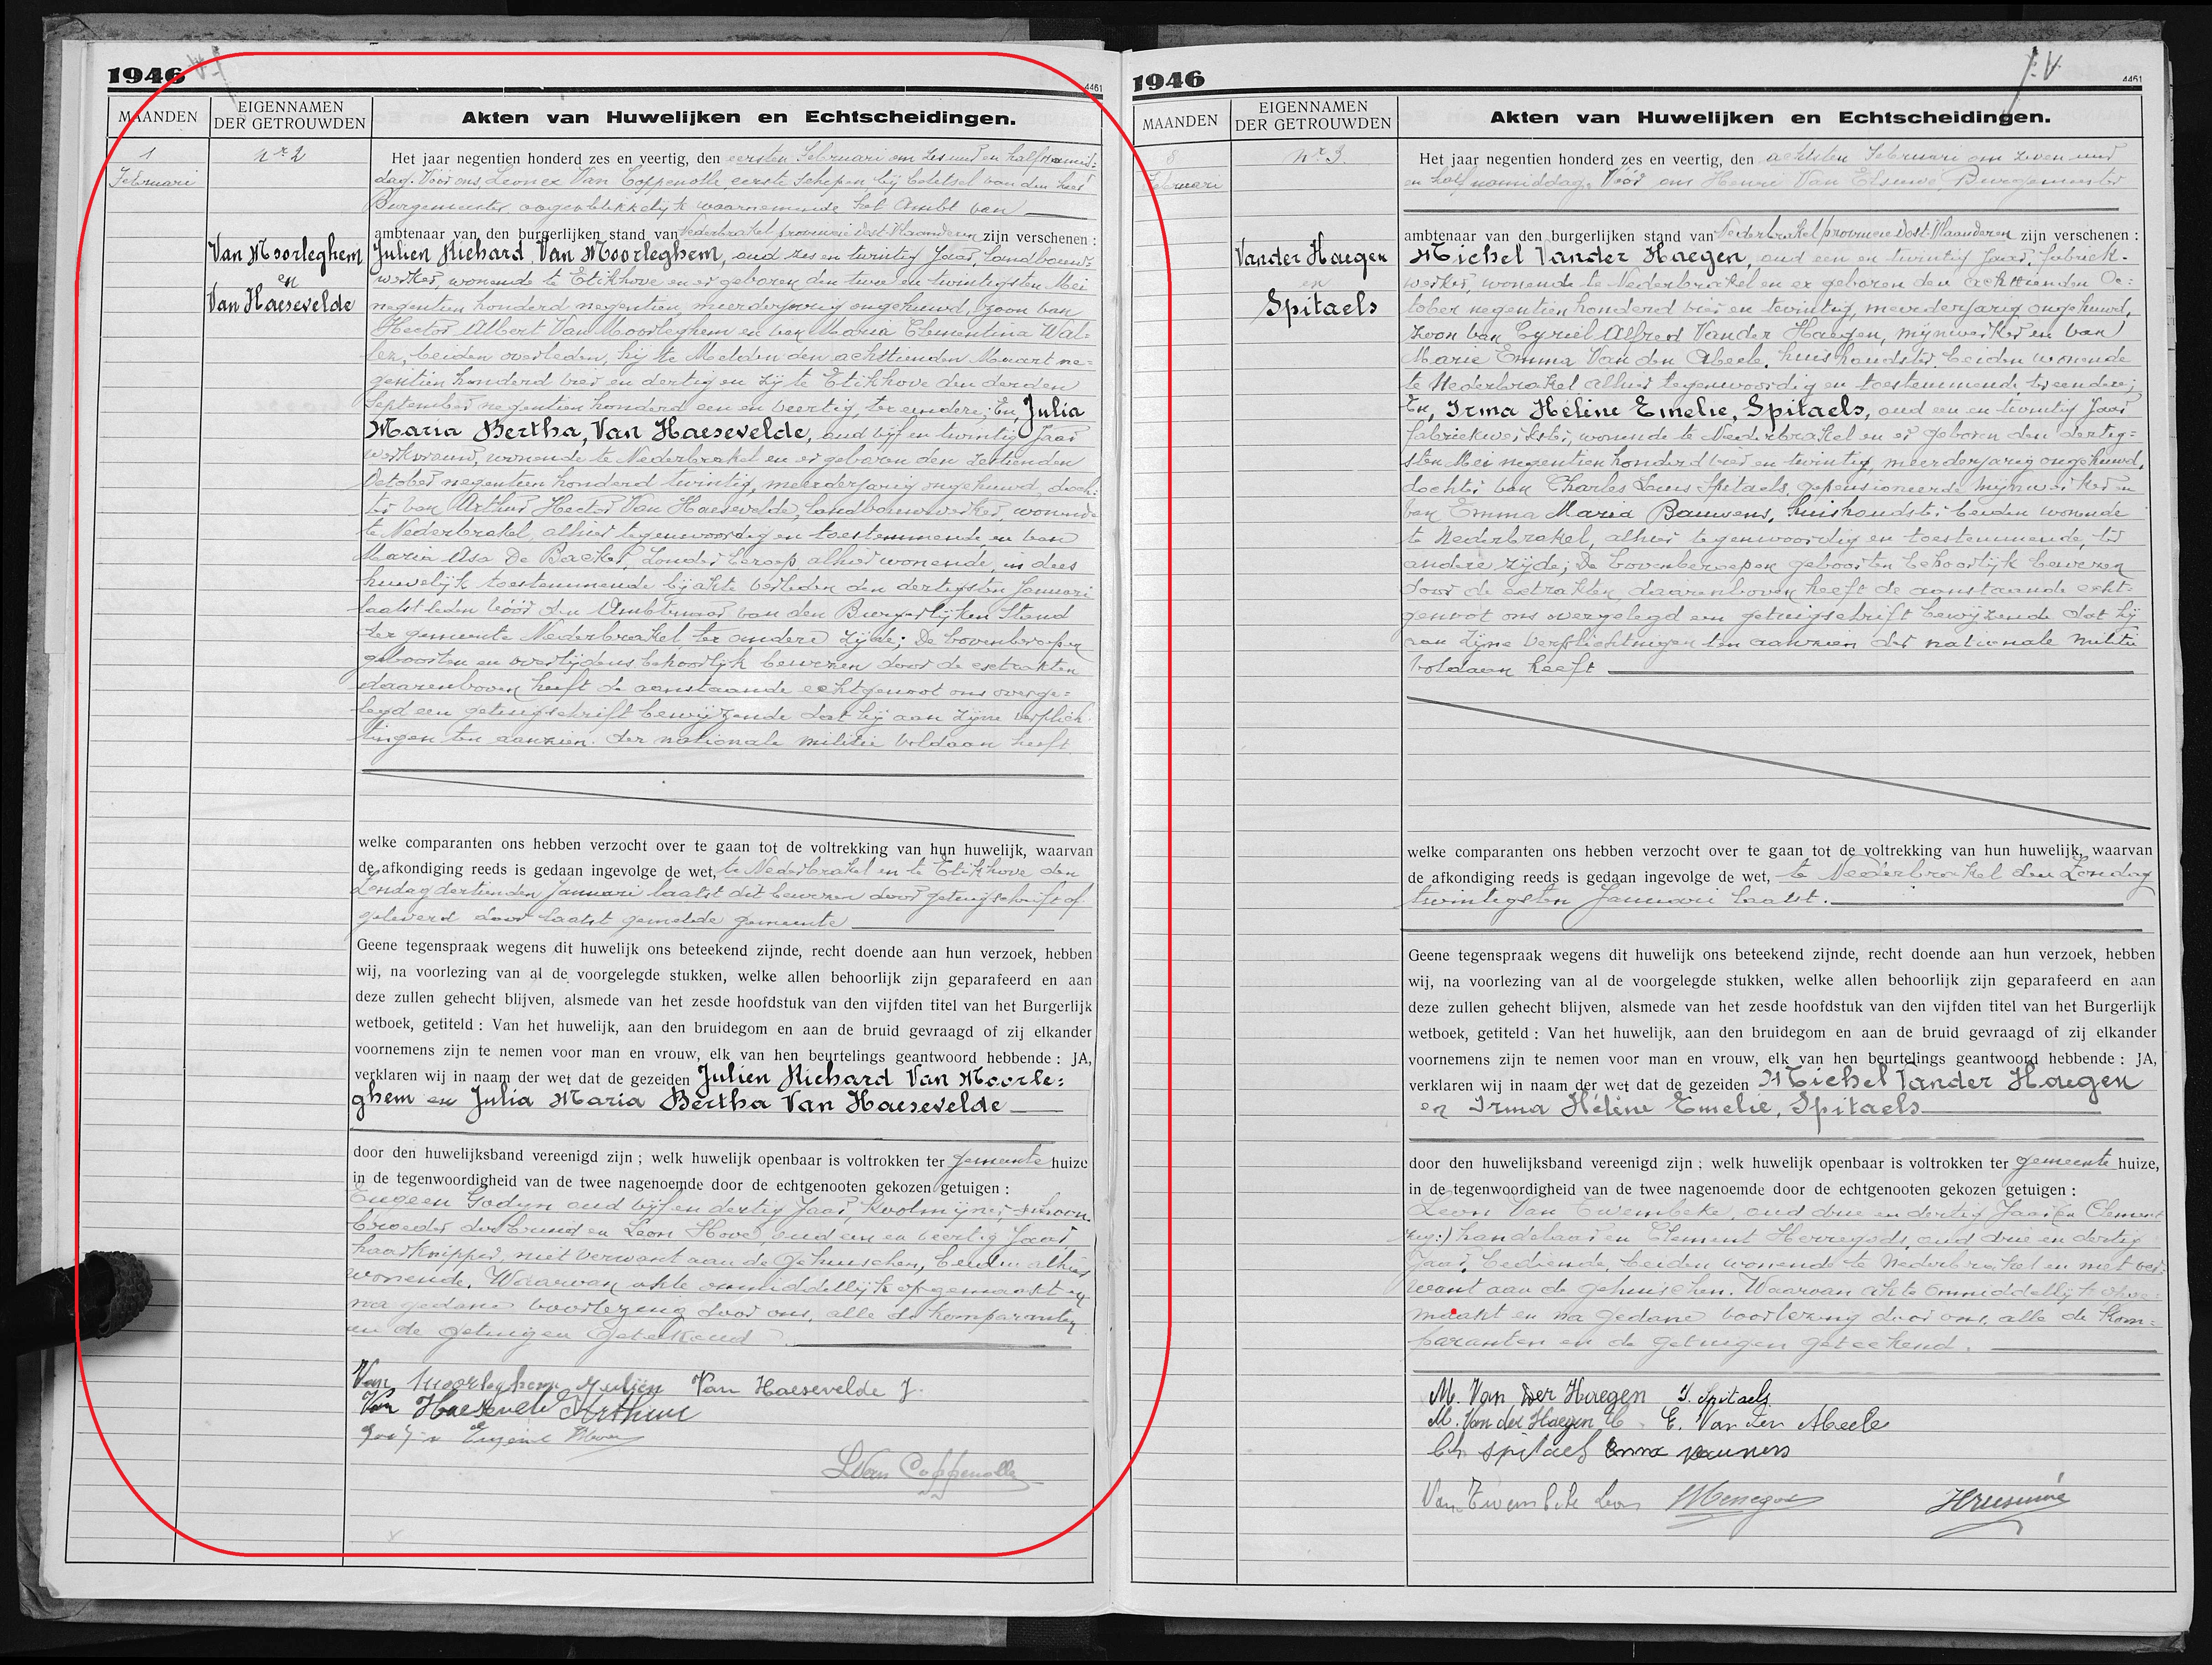 1946
4461
MAANDEN
EIGENNAMEN
DER GETROUWDEN
Akten van Huwelijken en Echtscheidingen.
1
Februari
Nr 2
Van Moorleghem
en
Van Haesevelde
Het jaar negentien honderd zes en veertig, den eersten Februari om zes uur en half namid-
dag. Vóór ons Leonce Van Coppenolle eerste Schepen bij beletsel van den heer
Burgemeester, oogenblikkelijk waarnemende het Ambt van
ambtenaar van den burgerlijken stand van Nederbrakel provincie Oost-Vlaanderen zijn verschenen :
Julien Richard Van Moorleghem, oud zes en twintig Jaar, landbouw-
werker, wonende te Etikhove en er geboren den twee en twintigsten Mei
negentien honderd negentien, meerderjarig ongehuwd, zoon van
Hector Albert Van Moorleghem en van Maria Clementina Wal-
len, beiden overleden, hij te Melden den achttienden Maart ne-
gentien honderd vier en dertig en zij te Etikhove den derden
September negentien honderd een en veertig, ter eendere; En, Julia
Maria Bertha, Van Haesevelde, oud vijf en twintig Jaar
werkvrouw, wonende te Nederbrakel en er geboren den zestienden
October negentien honderd twintig, meerderjarig ongehuwd, doch-
ter van Arthur Hector Van Haesevelde, landbouwwerker, wonende
te Nederbrakel, alhier tegenwoordig en toestemmende, en van
Maria Asa De Backer, zonder beroep alhier wonende, in dees
huwelijk toestemmende bij akte verleden den dertigsten Januari
laatstleden vóór den Ambtenaar van den Burgerlijken Stand
der gemeente Nederbrakel ter andere zijde; De bovenberoepen
geboorten en overlijdens behoorlijk bewezen door de extrakten
daarenboven heeft de aanstaande echtgenoot ons overge-
legd een getuigschrift bewijzende dat hij aan zijne verplich-
tingen ten aanzien der nationale militie voldaan heeft
welke comparanten ons hebben verzocht over te gaan tot de voltrekking van hun huwelijk, waarvan
de afkondiging reeds is gedaan ingevolge de wet, te Nederbrakel en te Etikhove den
Zondag dertienden Januari laatst dit bewezen door getuigschrift af
geleverd door laatst gemelde gemeente
Geene tegenspraak wegens dit huwelijk ons beteekend zijnde, recht doende aan hun verzoek, hebben
wij, na voorlezing van al de voorgelegde stukken, welke allen behoorlijk zijn geparafeerd en aan
deze zullen gehecht blijven, alsmede van het zesde hoofdstuk van den vijfden titel van het Burgerlijk
wetboek, getiteld : Van het huwelijk, aan den bruidegom en aan de bruid gevraagd of zij elkander
voornemens zijn te nemen voor man en vrouw, elk van hen beurtelings geantwoord hebbende : JA,
verklaren wij in naam der wet dat de gezeiden Julien Richard Van Moorle-
ghem en Julia Maria Bertha Van Haesevelde
door den huwelijksband vereenigd zijn ; welk huwelijk openbaar is voltrokken ter gemeente huize
in de tegenwoordigheid van de twee nagenoemde door de echtgenooten gekozen getuigen :
Eugeen Godyn oud vijf en dertig Jaar, Koolmijner, schoon-
broeder der bruid en Leon Hove, oud een en veertig Jaar,
haarknipper, niet verwant aan de gehuischen, beiden alhier
wonende. Waarvan akte onmiddellijk opgemaakt en
na gedane voorlezing door ons, alle de komparanten
en de getuigen geteekend
Van Moorleghem Julien Van Haesevelde J.
Van Haesevelde Arthur
Godyn Eugène Hove
LVan Coppenolle
1946
J.V.
4461
MAANDEN
EIGENNAMEN
DER GETROUWDEN
Akten van Huwelijken en Echtscheidingen.
8
Februari
Nr 3.
Vander Haegen
en
Spitaels
Het jaar negentien honderd zes en veertig, den achtsten Februari om zeven uur
en half namiddag. Vóór ons Henri Van Burgemeester
ambtenaar van den burgerlijken stand van Nederbrakel provincie Oost-Vlaanderen zijn verschenen :
Michel Vander Haegen, oud een en twintig Jaar, fabriek-
werker, wonende te Nederbrakel en er geboren den achttienden Oc-
tober negentien honderd vier en twintig, meerderjarig ongehuwd,
zoon van Cyriel Alfred Vander Haegen, mijnwerker en van
Marie Emma Van den Abeele, huishoudster beiden wonende
te Nederbrakel alhier tegenwoordig en toestemmende, ter eendere;
En, Irma Hélène Emelie, Spitaels, oud een en twintig Jaar
fabriekwerkster, wonende te Nederbrakel en er geboren den dertig-
sten Mei negentien honderd vier en twintig, meerderjarig ongehuwd,
dochter van Charles Louis Spitaels, gepensioneerde mijnwerker en
van Emma Maria Bauwens, huishoudster beiden wonende
te Nederbrakel, alhier tegenwoordig en toestemmende, ter
andere zijde; De bovenberoepen geboorten behoorlijk bewezen
door de extrakten, daarenboven heeft de aanstaande echt-
genoot ons overgelegd een getuigschrift bewijzende dat hij
aan zijne verplichtingen ten aanzien der nationale militie
voldaan heeft
welke comparanten ons hebben verzocht over te gaan tot de voltrekking van hun huwelijk, waarvan
de afkondiging reeds is gedaan ingevolge de wet, te Nederbrakel den Zondag
twintigsten Januari laatst.
Geene tegenspraak wegens dit huwelijk ons beteekend zijnde, recht doende aan hun verzoek, hebben
wij, na voorlezing van al de voorgelegde stukken, welke allen behoorlijk zijn geparafeerd en aan
deze zullen gehecht blijven, alsmede van het zesde hoofdstuk van den vijfden titel van het Burgerlijk
wetboek, getiteld : Van het huwelijk, aan den bruidegom en aan de bruid gevraagd of zij elkander
voornemens zijn te nemen voor man en vrouw, elk van hen beurtelings geantwoord hebbende : JA,
verklaren wij in naam der wet dat de gezeiden Michel Vander Haegen
en Irma Hélène Emelie, Spitaels
door den huwelijksband vereenigd zijn ; welk huwelijk openbaar is voltrokken ter gemeente huize,
in de tegenwoordigheid van de twee nagenoemde door de echtgenooten gekozen getuigen :
Leon Van Twembeke, oud drie en dertig Jaar (en Clement
handelaar en Clement Herregods, oud drie en dertig
Jaar, bediende, beiden wonende te Nederbrakel en niet ver-
want aan de gehuischen. Waarvan akte onmiddellijk opge-
maakt en na gedane voorlezing door ons, alle de kom-
paranten en de getuigen geteekend.
M. Van der Haegen I. Spitaels
M. Van der Haegen C. E. Van den Abeele
Ch Spitaels Emma Bauwens
Van Twembeke Leon